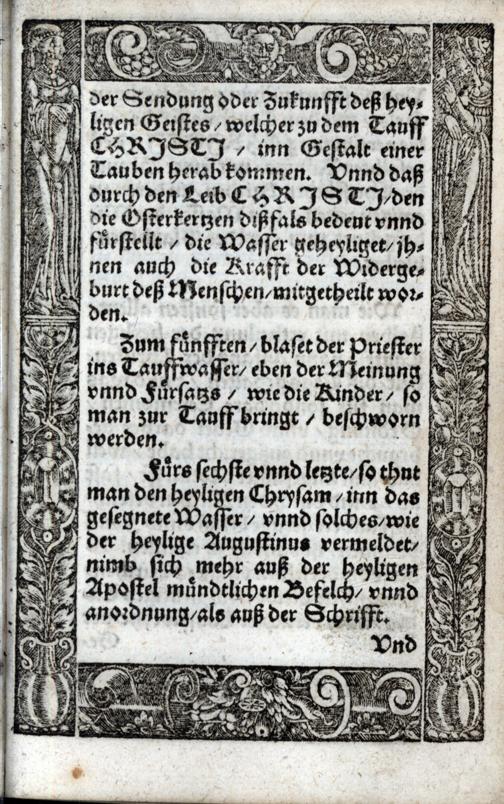 der Sendung oder Zukunfft deß hey-
ligen Geistes / welcher zu dem Tauff
CHRISTI / inn Gestalt einer
Tauben herab kommen. Vnnd daß
durch den Leib CHRISTI / den
die Osterkertzen dißfals bedeut vnnd
fürstellt / die Wasser geheyliget / jh-
nen auch die Krafft der Widerge-
burt deß Menschen / mitgetheilt wor-
den.
Zum fünfften / blaset der Priester
ins Tauffwasser / eben der Meinung
vnnd Fürsatzs / wie die Kinder / so
man zur Tauff bringt / beschworn
werden.
Fürs sechste vnnd letzte / so thut
man den heyligen Chrysam / inn das
gesegnete Wasser / vnnd solches / wie
der heylige Augustinus vermeldet /
nimb sich mehr auß der heyligen
Apostel mündtlichen Befelch / vnnd
anordnung / als auß der Schrifft.
Vnd